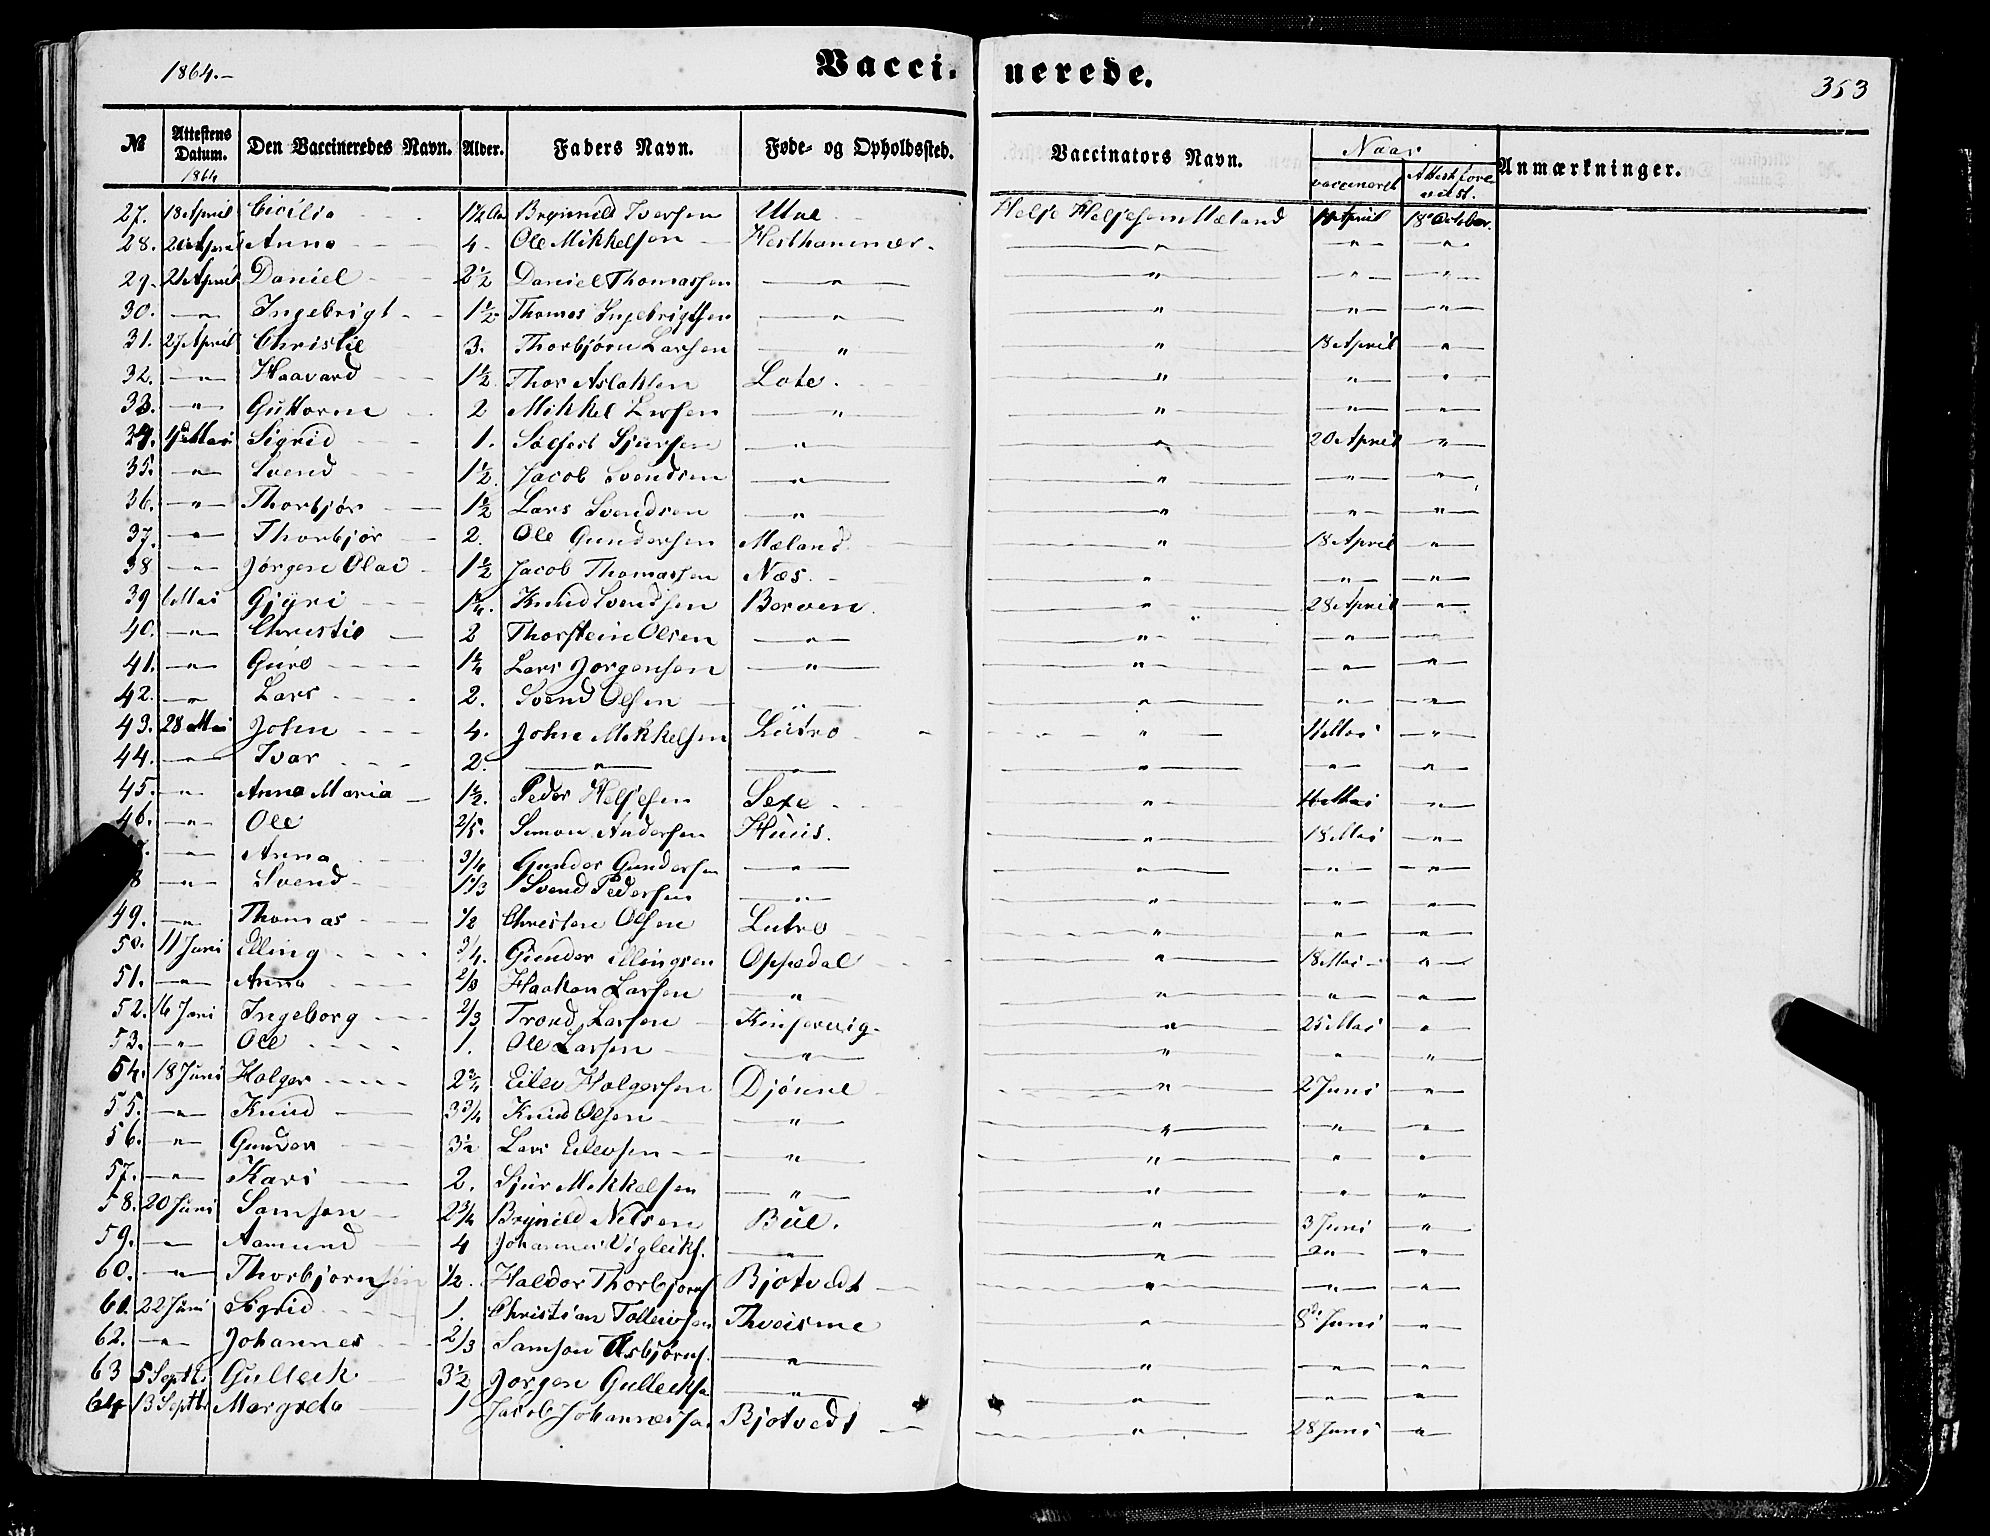 1864.– Vacci- nerede. 353
№ Attestens Datum. 1864 Den Vaccineredes Navn. Alder. Faders Navn. Føde- og Opholdssted. Vaccinators Navn. Naar vaccineret Attest forevist. Anmærkninger.
27. 18 April Cicilia 1½ Aar Brynnild Iversen Utne Helje Heljesen Mæland 11 April 18 October.
28. 20 April Anna 4. Ole Mikkelsen Hesthammer. " " "
29. 21 April Daniel 2½ Daniel Thomassen " " " "
30. " Ingebrigt 1½ Thomas Ingebrigtsen " " " "
31. 27 April Christie 3. Thorbjørn Larsen " " 18 April "
32. " Haavard 1½ Thor Aslaksen Lote. " " "
33. " Guttorm 2 Mikkel Larsen " " " "
34. 4 Mai Sigrid 1. Solfest Sjursen " " 20 April "
35. " Svend 1½ Jacob Svendsen " " " "
36. " Thorbjør 1½ Lars Svendsen " " " "
37. " Thorbjør 2. Ole Gundersen Mæland. " 18 April "
38 " Jørgen Olai 1½ Jacob Thomassen Næs. " " "
39 6 Mai Gjyri 1¾. Knud Svendsen Berven. " 28 April "
40. " Christie 2 Thorstein Olsen " " " "
41. " Guro 1¼ Lars Jørgensen " " " "
42. " Lars 2. Svend Olsen " " " "
43. 28 Mai John 4. John Mikkelsen Lutro " 11 Mai "
44. " Ivar 2. " " " " "
45. " Anna Maria 1½. Peder Heljesen Sexe " 11 Mai "
46. " Ole 2/5. Simon Andersen Huus. " 18 Mai "
" Anna 3/4 Gunder Gundersen " " " "
8 " Svend 1 1/3 Svend Pedersen " " " "
49. " Thomas 1/2 Christen Olsen Lutro " " "
50. 11 Juni Elling 3/4. Gunder Ellingsen Oppedal " 18 Mai "
51. " Anna 2/3 Haakon Larsen " " " "
52. 16 Juni Ingeborg 2/3 Trond Larsen Kinservig. " 25 Mai "
53. " Ole 1. Ole Larsen " " " "
54. 18 Juni Holger 2¾ Eilev Holgersen Djønne " 2 Juni "
55. " Knud 3 3/4 Knud Olsen " " " "
56. " Gunder 3½ Lars Eilevsen " " " "
57. " Kari 2. Sjur Mikkelsen " " " "
58. 20 Juni Samson 2 3/4 Brynild Nilsen Bue. " 3 Juni "
59. " Aamund 4 Johannes Vigleiks. " " " "
60. " Thorbjørn 1/2. Haldor Thorbjørns Bjotvedt " " "
61. 22 Juni Sigrid 1. Christian Tolleivsen Thveisme " 8de Juni "
62. " Johannes 2/3 Samson Asbjørns. " " " "
63 5 Septbr Gulleik 3½ Jørgen Gulleiksn " " " "
64 13 Septbr Margreta 1 Jacob Johannessen Bjotvedt " 28 Juni "